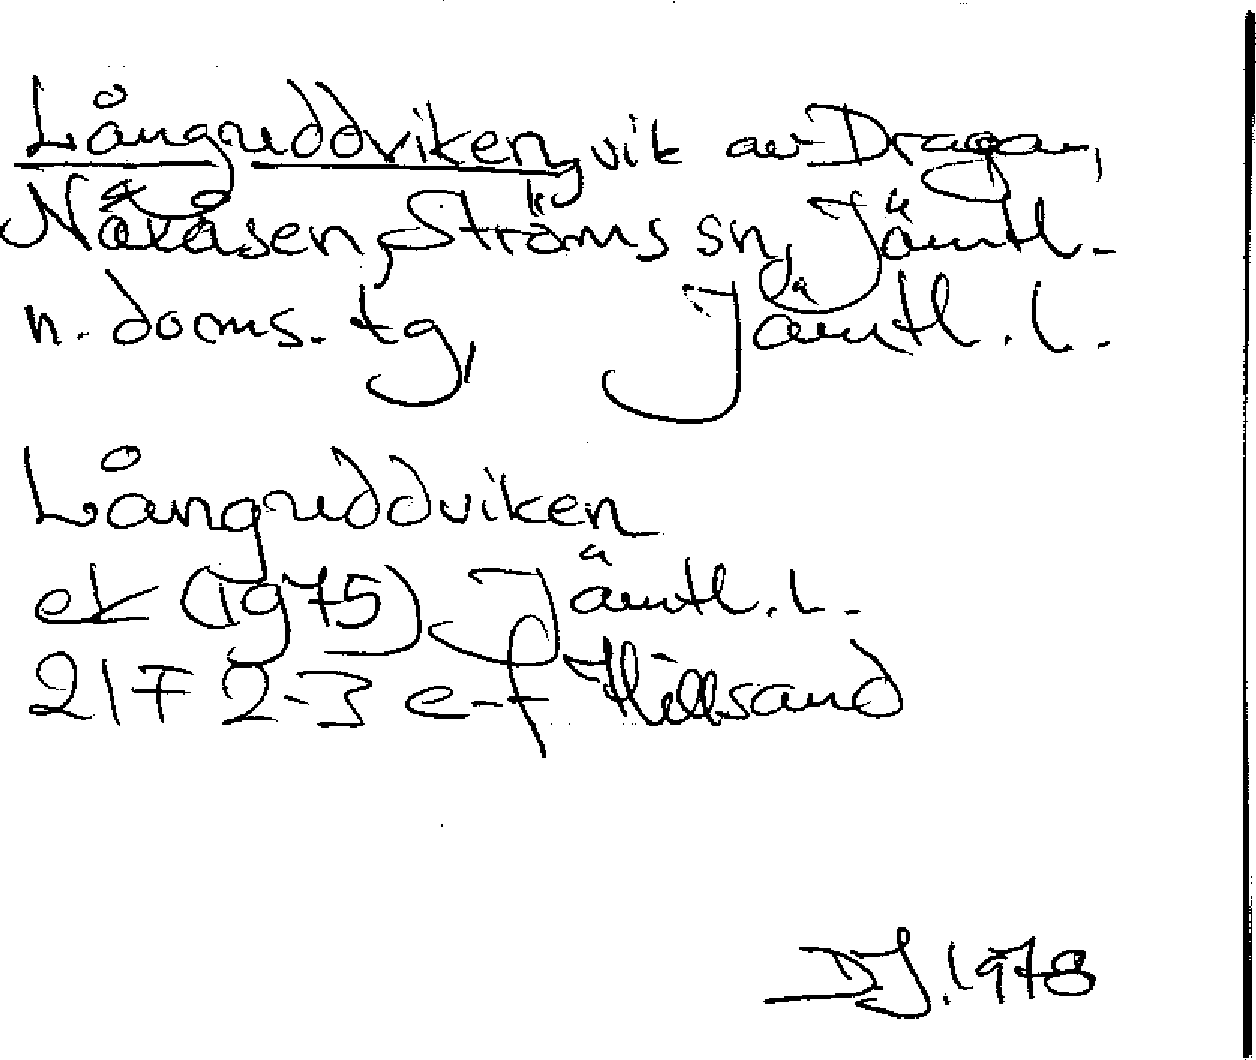 Långuddviken, vik av Dragan,
Näkåsen, Ströms sn, Jämtl.
n. doms. tg, Jämtl. l.
Långuddviken
ek (1975) Jämtl. l.
21F 2-3 e-f Hillsand
DJ. 1978